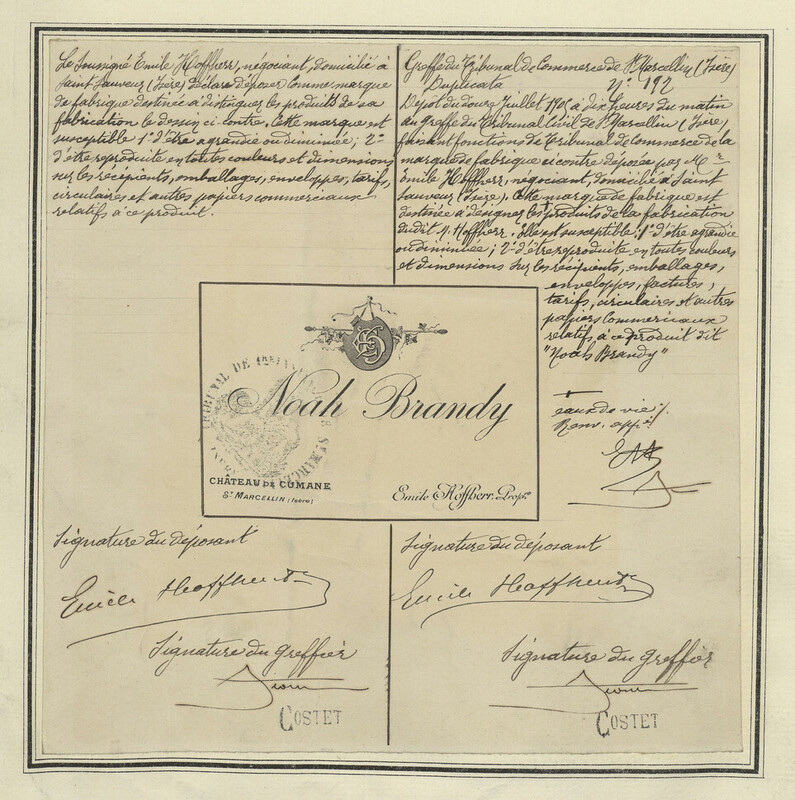 Le Soussigné Emile Hoffherr, négociant, domicilié à
Saint Sauveur (Isère) déclare déposer comme marque
de fabrique destinée à distinguer les produits de sa
fabrication le dessin ci-contre. Cette marque est
susceptible 1° d'être agrandie ou diminuée; 2°
d'être reproduite en toutes couleurs et dimensions
sur les récipients, emballages, enveloppes, tarifs,
circulaires et autres papiers commerciaux
relatifs à ce produit.
Greffe du Tribunal de Commerce de St Marcellin (Isère)
Duplicata n° 192
Dépôt du douze Juillet 1905 à dix heures du matin
au greffe du Tribunal Civil de St Marcellin (Isère),
faisant fonctions de Tribunal de Commerce de la
marque de fabrique ci contre déposée par Mr
Emile Hoffherr, négociant, domicilié à Saint
Sauveur (Isère). Cette marque de fabrique est
destinée à désigner les produits de la fabrication
dudit M. Hoffherr. Elle est susceptible: 1° d'être agrandie
ou diminuée; 2° d'être reproduite en toutes couleurs
et dimensions sur les récipients, emballages,
enveloppes, factures,
tarifs, circulaires et autres
papiers commerciaux
relatifs à ce produit dit
"Noah Brandy"
eaux de vie
Renv. app.
TRIBUNAL DE
Noah Brandy
CHÂTEAU DE CUMANE
ST MARCELLIN (Isère)
Emile Hoffherr. Propre
Signature du déposant
Emile Hoffherr
Signature du greffier
COSTET
Signature du déposant
Emile Hoffherr
Signature du greffier
COSTET